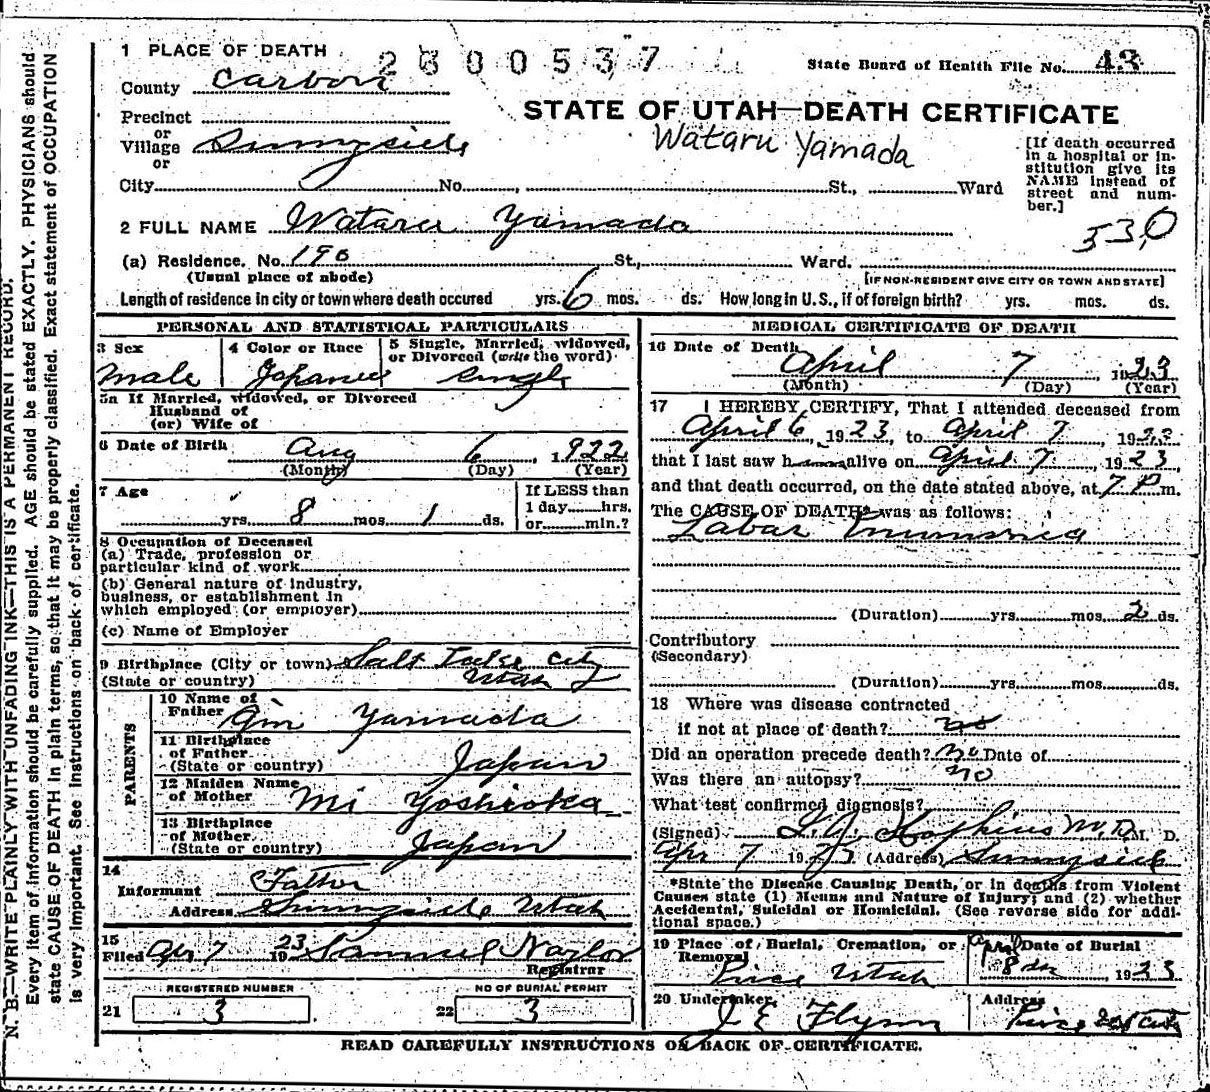 1 PLACE OF DEATH 2300537 State Board of Health File No. 43
County Carbon
STATE OF UTAH—DEATH CERTIFICATE
Precinct
or
Village Sunnyside
or
Wataru Yamada
[If death occurred
in a hospital or in-
stitution give its
NAME instead of
street and num-
ber.]
City No. , St., Ward
2 FULL NAME Wataru Yamada
530
(a) Residence. No. 196 St., Ward.
(Usual place of abode) [IF NON-RESIDENT GIVE CITY OR TOWN AND STATE]
Length of residence in city or town where death occured yrs. 6 mos. ds. How long in U.S., if of foreign birth? yrs. mos. ds.
PERSONAL AND STATISTICAL PARTICULARS
3 Sex 4 Color or Race 5 Single, Married, widowed,
or Divorced (write the word)
Male Japanese single
5a If Married, widowed, or Divorced
Husband of
(or) Wife of
6 Date of Birth Aug 6 1922
(Month) (Day) (Year)
7 Age If LESS than
1 day hrs.
yrs. 8 mos. 1 ds. or min.?
8 Occupation of Deceased
(a) Trade, profession or
particular kind of work
(b) General nature of industry,
business, or establishment in
which employed (or employer)
(c) Name of Employer
9 Birthplace (City or town) Salt Lake City
(State or country) Utah
PARENTS
10 Name of
Father Gin Yamada
11 Birthplace
of Father
(State or country) Japan
12 Maiden Name
of Mother Mi Yoshioka
13 Birthplace
of Mother
(State or country) Japan
14
Informant Father
Address Sunnyside Utah
15
Filed Apr 7 1923 Samuel Naylor
Registrar
REGISTERED NUMBER NO OF BURIAL PERMIT
21 3 22 3
MEDICAL CERTIFICATE OF DEATH
16 Date of Death
April 7 1923
(Month) (Day) (Year)
17 I HEREBY CERTIFY, That I attended deceased from
April 6, 1923, to April 7, 1923
that I last saw h alive on April 7, 1923,
and that death occurred, on the date stated above, at 7 P m.
The CAUSE OF DEATH* was as follows:
Labar Pneumonia
(Duration) yrs. mos. 2 ds.
Contributory
(Secondary)
(Duration) yrs. mos. ds.
18 Where was disease contracted
if not at place of death? no
Did an operation precede death? no Date of
Was there an autopsy? no
What test confirmed diagnosis?
(Signed) Hopkins M.D. M. D.
Apr 7 1923 (Address) Sunnyside
*State the Disease Causing Death, or in deaths from Violent
Causes state (1) Means and Nature of Injury; and (2) whether
Accidental, Suicidal or Homicidal. (See reverse side for addi-
tional space.)
19 Place of Burial, Cremation, or
Removal
Price Utah
Date of Burial
April 8 1923
20 Undertaker Address
J E Flynn Price Utah
READ CAREFULLY INSTRUCTIONS ON BACK OF CERTIFICATE.
N. B.—WRITE PLAINLY WITH UNFADING INK—THIS IS A PERMANENT RECORD.
Every item of information should be carefully supplied. AGE should be stated EXACTLY. PHYSICIANS should
state CAUSE OF DEATH in plain terms, so that it may be properly classified. Exact statement of OCCUPATION
is very important. See instructions on back of certificate.